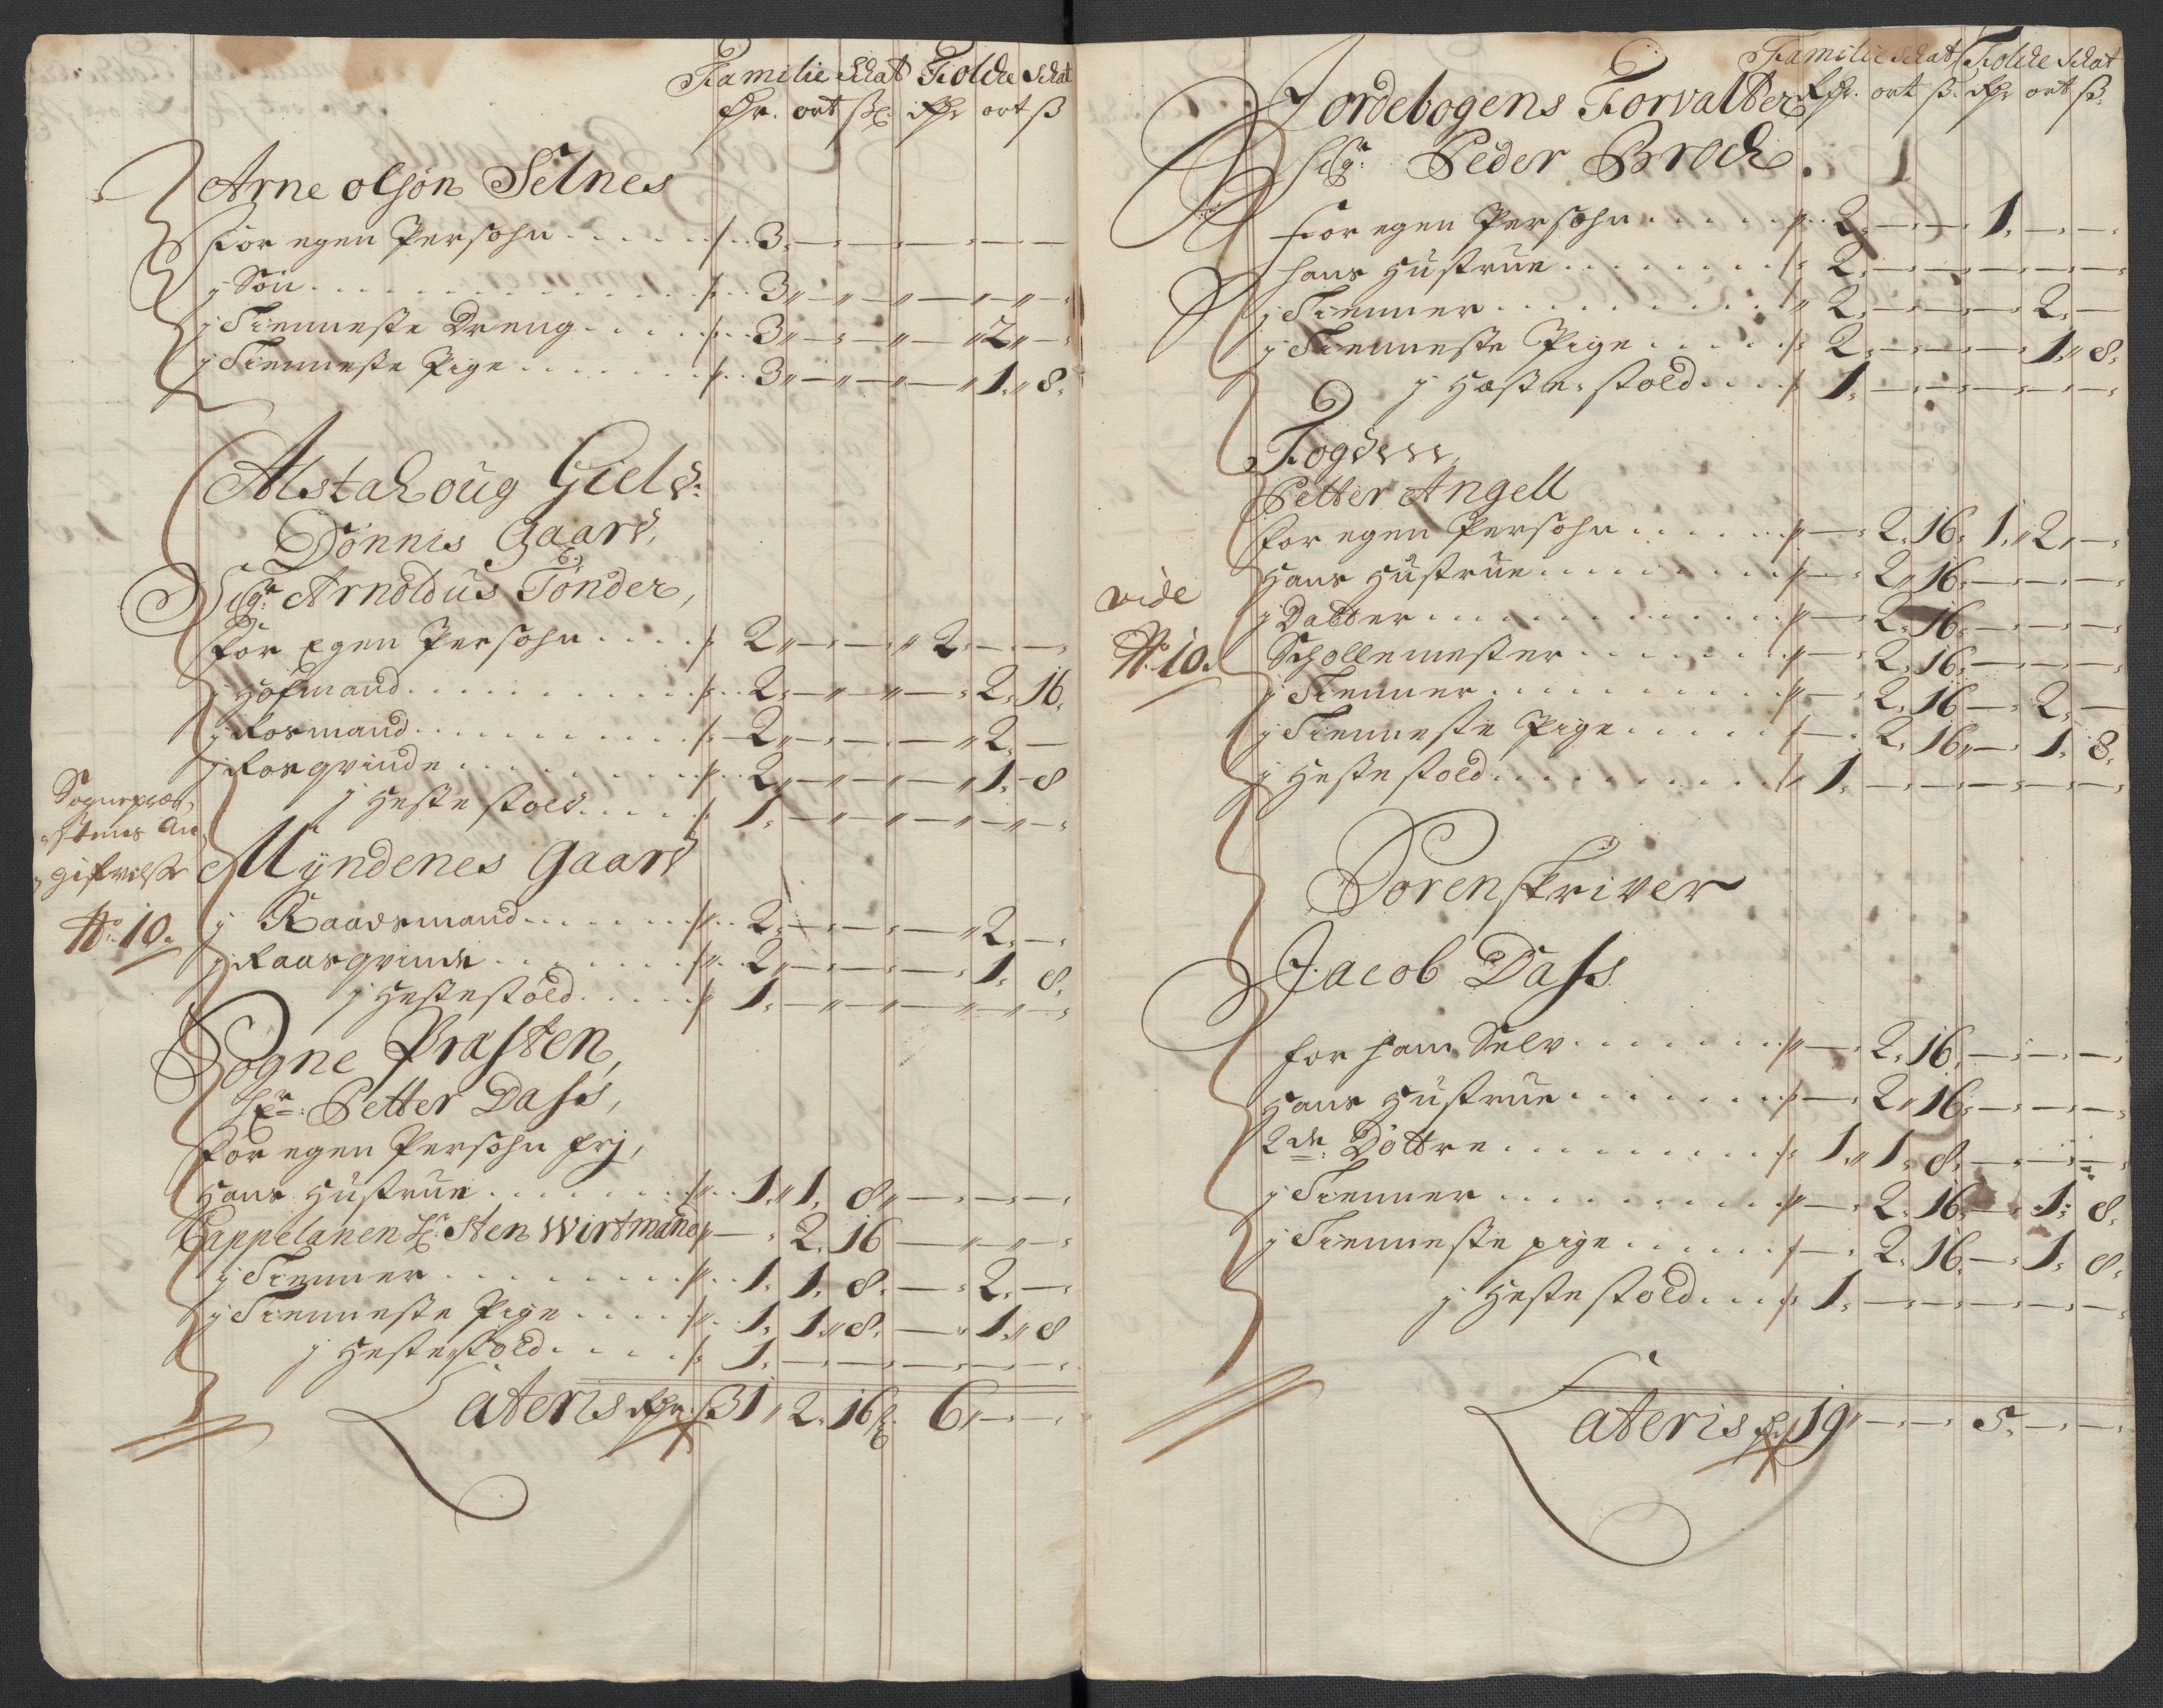 Familie Schat Folche Schat
Rdr. ort ß. Rdr ort ß
Arne olsøn Selnes
for egen Persohn . . . . . . 3 — — — — —
j Søn . . . . . . 3 — — — — —
j Tienneste Dreng . . . . . 3 — — — 2 —
j Tienneste Pige . . . . . . 3 — — — 1 8
Alstahoug Gield:
Dønnis Gaard,
Sigr: Arnoldus Tønder,
for egen Persohn . . . . 2 — — 2 — —
j Hofmand . . . . . . 2 — — — 2 16
j Rorsmand . . . . . . 2 — — — 2 —
j Rorqvinde . . . . . . 2 — — — 1 8
j Heste stold . . . . 1 — — — — —
Sognepræ-
stens An-
gifvelse
No. 10.
Myndenes Gaard
j Raadsmand . . . . . 2 — — — 2 —
j Raarqvinde . . . . . . 2 — — — 1 8
j Hestestold . . . . . 1 — — — — —
Sogne Præsten,
Hr: Petter Dass,
for egen Persohn frj,
Hans Hustrue . . . . . . 1 1 8 — — —
Cappelanen Hr: Sten Wirtmand — 2 16 — — —
j Tienner . . . . . . 1 1 8 — 2 —
j Tienneste Pige . . . . 1 1 8 — 1 8
j Hestestold . . . . . 1 — — — — —
Lateris Rdr. 31 2 16 ß 6 — —
Familie Schat Folche Schat
Rdr. ort ß. Rdr ort ß.
Jordebogens Forvalter
Sigr: Peder Broch.
for egen Persohn . . . . . 2 — — 1 — —
hans Hustrue . . . . . . . 2 — — — — —
j Tienner . . . . . . . . 2 — — — 2 —
j Tienneste Pige . . . . . 2 — — — 1 8
j Hæste stold . . . . 1 — — — — —
Fogden,
Petter Angell
for egen Persohn . . . . . — 2 16 1 2 —
Hans Hustrue . . . . . . . — 2 16 — — —
j Datter . . . . . . . . — 2 16 — — —
vide
No. 10.
Schollemester . . . . . . — 2 16 — — —
j Tienner . . . . . . . . — 2 16 — 2 —
j Tienneste Pige . . . . . — 2 16 — 1 8
j Hestestold . . . . . . . 1 — — — — —
Sorenskriver
Jacob Dass
for ham Selv . . . . . . . — 2 16 — — —
Hans Hustrue . . . . . . . — 2 16 — — —
2de: Døttre . . . . . . . . 1 1 8 — — —
j Tienner . . . . . . . . — 2 16 — 1 8
j Tienneste pige . . . . . — 2 16 — 1 8
j Hestestold . . . 1 — — — — —
Lateris Rdr 19 — — 5 — —